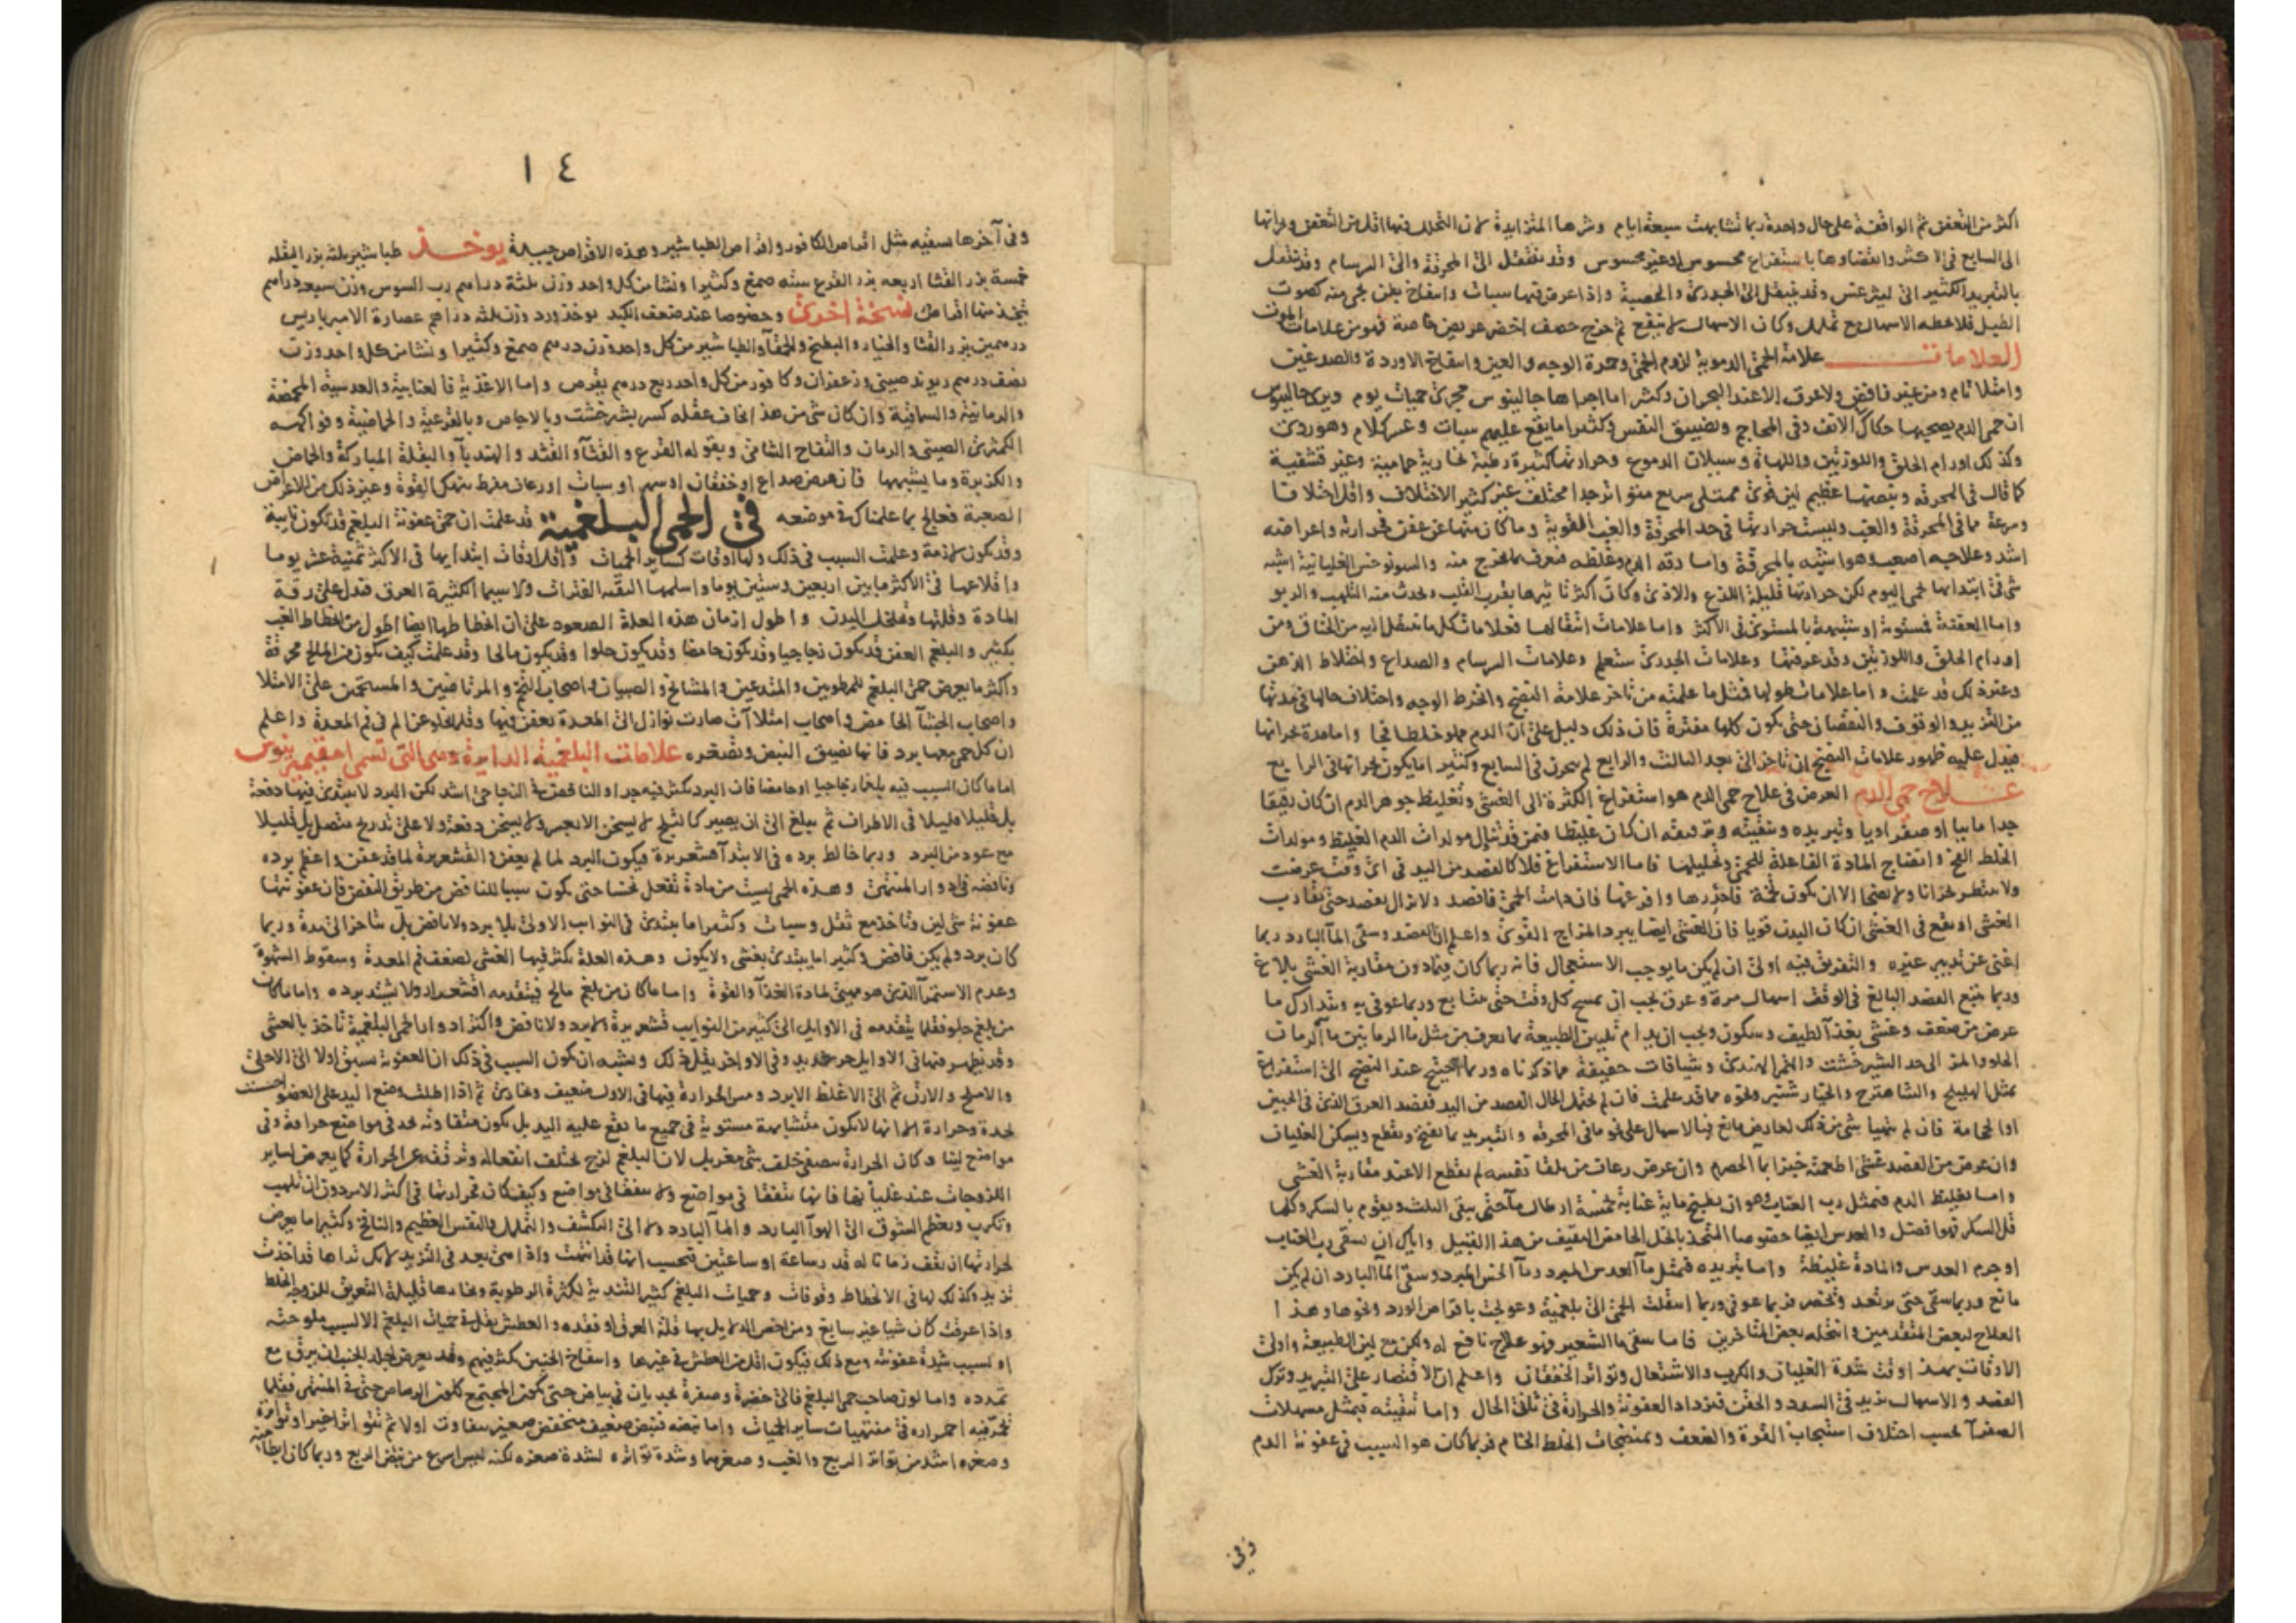 اكثر من التعفن ثم الواقفة على حال واحدة ربما تشابهت سبعة ايام وشرها المتزايدة لان التحلل فيها اقل من التعفن
الى السابع فى الاكثر وانقضاوها باستفراغ محسوس او غير محسوس وقد تنتقل الى المحرقة والى السرسام وقد تنتقل
بالتبريد الكثير الى ليثرغس وقد ينتقل الى الجدرى والحصبة واذا عرض فيها سبات وانتفاخ بطن
الاسهال ثم خرج حصف اخضر عريض خاصة فهو من علامات الموت
العلامات علامة الحمى الدموية لزوم الحمى وحمرة الوجه والعين وانتفاخ الاوردة والصدغين
وامتلا تام ومن غير نافض ولا عرق الا عند البحران وكثيرا ما اجراها جالينوس مجرى حميات يوم ويرى جالينوس
ان حمى الدم يصحبها حكاك الانف وفى المحاجر وتضييق النفس وكثيرا ما يقع عليهم سبات وعسر كلام وهو ردى
وكذلك اورام الحلق واللوزتين واللهاة وسيلان الدموع وحرارتها كثيرة رطبة بخارية حمامية وغير قشفية
كما قال فى المحرقة ونبضها عظيم لين قوى ممتلى سريع متواتر جدا مختلف غير كثير الاختلاف واقل اختلافا
وسرعة مما فى المحرقة والغب وليست حرارتها فى حد المحرقة والغب القوية وما كان منها عن عفن فحرارته واعراضه
اشد وعلاجه اصعب وهو اشبه بالمحرقة واما رقة الدم وغلظه فتعرف بما يخرج منه والسونوخس الغليانية اشبه
شى فى ابتدايها بحمى اليوم لكن حرارتها قليلة اللذع والاذى وكان اكثر تاثيرها بقرب القلب ويحدث منه التلهب والربو
واما العفنة فمستوية او شبيهة بالمستوى فى الاكثر واما علامات انتقالها فعلامات كل ما تنتقل اليه من الخناق ومن
اورام الحلق واللوزتين وقد عرفتها وعلامات الجدرى ستعلم وعلامات السرسام والصداع واختلاط الذهن
وغير ذلك قد علمت واما علامات طولها فمثل ما علمته من تاخر علامة النضج وانخرط الوجه واختلاف حالها فى مدتها
من التزيد والوقوف والنقصان حتى يكون كانها مفترة فان ذلك دليل على ان الدم مملو خلطا فجا واما مدة بحرانها
فيدل عليه ظهور علامات النضج ان تاخر الى بعد الثالث والرابع لم يبحرن فى السابع وكثيرا ما يكون بحرانها فى الرابع
علاج حمى الدم الغرض فى علاج حمى الدم هو استفراغ الكثرة الى الغشى وتغليظ جوهر الدم ان كان رقيقا
جدا مائيا او صفراويا وتبريده وتنقيته وترقيقه ان كان غليظا فمن قد تناول مولدات الدم الغليظ ومولدات
الخلط الفج وانضاج المادة الفاعلة للحمى وتحليلها فاما الاستفراغ فلا كالفصد من اليد فى اى وقت عرضت
ولا تنتظر بحرانا ولا نضجا الا ان يكون تخمة فاحذرها وافرغها فان دامت الحمى فافصد ولا تزال تفصد حتى يقارب
الغشى او يقع فى الغشى ان كان البدن قويا فان الغشى ايضا يبرد المزاج القوى واعلم ان الفصد وسقى الما البارد ربما
اغنى عن تدبير غيره والتفريق فيه اولى ان لم يكن ما يوجب الاستعجال فانه ربما كان فيما دون مقاربة الغشى بلاغ
وربما يتبع الفصد البالغ فى الوقت اسهال مرة وعرق يجب ان يمسح كل وقت حتى يتتابع وربما عوفى به ويتدارك ما
عرض من ضعف وغشى بغذا لطيف وسكون ويجب ان يدام تليين الطبيعة بما يعرف من مثل ما الرمانين ما الرمان
الحلو والمز الى حد الشيرخشت والتمر الهندى وشيافات خفيفة مما ذكرناه وربما احتيج عند النضج الى استفراغ
بمثل الهليلج والشاهترج والخيار شنبر ونحوه مما قد علمت فان لم تحتمل الحال الفصد من اليد ففصد العرق الذى فى الجبين
او الحجامة فان لم يتهيا شى من ذلك لعارض مانع فبالاسهال على نحو ما فى المحرقة والتبريد بما يفتح ويقطع ويسكن الغليان
وان عرض من الفصد غشى اطعمته خبزا بما الحصرم وان عرض رعاف من تلقا نفسه لم يقطع الا عند مقاربة الغشى
واما تغليظ الدم فبمثل رب العناب وهو ان يطبخ ماية عنابة بخمسة ارطال ما حتى يبقى الثلث ويقوم بالسكر وكلما
قل السكر فهو افضل والعدس ايضا خصوصا المتخذ بالخل الحامض الثقيف من هذا القبيل واياك ان تسقى رب العناب
او جرم العدس والمادة غليظة واما تبريده فبمثل ما العدس المبرد وما الخس المبرد وسقى الما البارد ان لم يكن
مانع وربما سقى حتى يرتعد ويخضر فربما عوفى وربما انتقلت الحمى الى بلغمية وعولجت باقراص الورد ونحوها وهذا
العلاج لبعض المتقدمين وانتحله بعض المتاخرين فاما سقى ما الشعير فهو علاج نافع له ولكن مع لين الطبيعة واولى
الاوقات بهذا وقت شدة الغليان والكرب والاشتعال وتواتر الخفقان واعلم ان الاقتصار على التبريد وترك
الفصد والاسهال يزيد فى السدد والحقن فتزداد العفونة والحرارة فى ثانى الحال واما تنقيته فبمثل مسهلات
الصفرا بحسب اختلاف استيجاب القوة والضعف وبمنضجات الخلط الخام فربما كان هو السبب فى عفونة الدم
وفى
١٤
وفى آخرها سقيه مثل اقراص الكافور واقراص الطباشير وهذه الاقراص جيدة يوخذ طباشير ثلثة بزر البقلة
خمسة بزر القثا اربعه بزر القرع سته صمغ وكثيرا ونشا من كل واحد وزن ثلثة دراهم رب السوس وزن سبعة دراهم
يتخذ منها اقراص نسخة اخرى وخصوصا عند ضعف الكبد يوخذ ورد وزن ثلثه دراهم عصارة الامبرباريس
درهمين بزر القثا والخيار والبطيخ والحمقا والطباشير من كل واحد وزن درهم صمغ وكثيرا ونشا من كل واحد وزن
نصف درهم ريوند صينى وزعفران وكافور من كل واحد ربع درهم يقرص واما الاغذية فالعنابية والعدسية المحمضة
والرمانية والسماقية وان كان شى من هذا يخاف عقله كسر بشيرخشت وبالاجاص وبالقرعية والحماضية وفواكهه
الكمثرى الصينى والرمان والتفاح الشامى وبقوله القرع والقثا والقثد والهندبا والبقلة المباركة والحماض
والكزبرة وما يشبهها فان عرض صداع او خفقان او سهر او سبات او رعاف مفرط ينهك القوة وغير ذلك من الاعراض
الصعبة فعالج بما علمناك فى موضعه فى الحمى البلغمية قد علمت ان حمى عفونة البلغم قد تكون نايبة
وقد تكون لازمة وعلمت السبب فى ذلك ولها اوقات كساير الحميات واقل اوقات ابتدايها فى الاكثر ثمنية عشر يوما
واقلاعها فى الاكثر ما بين اربعين وستين يوما واسلمها النقية الفترات ولا سيما الكثيرة العرق فتدل على رقة
المادة وقلتها وتخلخل البدن واطول ازمان هذه العلة الصعود على ان انحطاطها ايضا اطول من انحطاط الغب
بكثير والبلغم العفن قد يكون زجاجيا وقد يكون حامضا وقد يكون حلوا وقد يكون مالحا وقد علمت كيف يكون من المالح محرقة
واكثر ما يعرض حمى البلغم للمرطوبين والمتدعين والمشايخ والصبيان واصحاب التخم والمرتاضين والمستحمين على الامتلا
واصحاب الجشا الحامض واصحاب امتلاات صارت نوازل الى المعدة تعفن فيها وقلما يخلو عن الم فى فم المعدة واعلم
ان كل حمى معها برد فانها تضيق النبض وتصغره علامات البلغمية الدايرة وهى التى تسمى امفيمرينوس
اما ما كان السبب فيه بلغما زجاجيا او حامضا فان البرد يكثر فيه جدا والنافض فى الزجاجى اشد لكن البرد لا يبتدى فيها دفعة
بل قليلا قليلا فى الاطراف ثم يبلغ الى ان يصير كالثلج لا يسخن الا بعسر ولا يسخن دفعة ولا على تدريج متصل بل قليلا
مع عود من البرد وربما خالط برده فى الابتدا قشعريرة فيكون البرد لما لم يعفن والقشعريرة لما قد عفن واعظم برده
ونافضه فى ادوار المنتهى وهذه الحمى ليست من مادة تفعل نخسا حتى يكون سببا للنافض من طريق النفض فان عفونتها
عفونة شى لين وتاخذ مع ثقل وسبات وكثيرا ما يبتدى فى النوايب الاولى بلا برد ولا نافض بل يتاخر الى مدة وربما
كان برد ولم يكن نافض وكثيرا ما يبتدى بغشى ولا يكون وهذه العلة يكثر فيها الغشى لضعف فم المعدة وسقوط الشهوة
وعدم الاستمرا الذى هو مهيئ لمادة الغذا والقوة واما ما كان من بلغم مالح فيتقدمه اقشعرار ولا يشتد برده واما ما كان
من بلغم حلو فقلما يتقدمه فى الاوايل الى كثير من النوايب قشعريرة ولا برد ولا نافض واكثر ادوار الحمى البلغمية تاخذ بالغشى
وقد يظهر فيها فى الاوايل حر شديد وفى الاواخر يقل ذلك ويشبه ان يكون السبب فى ذلك ان العفونة تسبق اولا الى الاحلى
والاملح والارق ثم الى الاغلظ الابرد ومس الحرارة فيها فى الاول ضعيف وبخارى ثم اذا اطلت وضع اليد على العضو احست
بحدة وحرارة الا انها لا تكون متشابهة مستوية فى جميع ما تقع عليه اليد بل يكون متفاوتة تجد فى مواضع حرارة وفى
مواضع لينا وكان الحرارة تتصفى خلف شى مغربل لان البلغم لزج يختلف انفعاله وترققه عن الحرارة كما يعرض لساير
اللزوجات عند غليانها فانها تتفقا فى مواضع ولا تتفقا فى مواضع وكيف كان فحرارتها فى اكثر الامر دون ان تلهب
وتكرب وتعظم الشوق الى الهوا البارد والما البارد والى التكشف والتململ والنفس العظيم والنافخ وكثيرا ما يعرض
لحرارتها ان تقف زمانا له قدر ساعة او ساعتين فتحسب انها قد انتهت واذا هى بعد فى التزيد
تزيد وكذلك لها فى الانحطاط وقوفات وحميات البلغم كثيرا لتندية لكثرة الرطوبة وبخارها قليلة التعريق للزوجة الخلط
واذا عرقت كان شيا غير سابغ ومن اخص الدلايل بها قلة العرق او فقده والعطش يقل فى حميات البلغم الا لسبب ملوحته
او لسبب شدة عفونته ومع ذلك فيكون اقل من العطش فى غيرها وانتفاخ الجنبين يكثر فيهم وقد يعرض لجلد الجنب ان يرق مع
تمدده واما لون صاحب حمى البلغم فالى خضرة وصفرة يجريان فى بياض حتى يكون المجتمع كلون الرصاص حتى فى المنتهى فقلما
تحمر فيه احمراره فى منتهيات ساير الحميات واما نبضه فنبض ضعيف منخفض صغير متفاوت اولا ثم يتواتر اخيرا وتواتره
وصغره اشد من تواتر الربع والغب وصغرهما وشدة تواتره لشدة صغره لكنه ليس اسرع من نبض الربع وربما كان ابطا منه